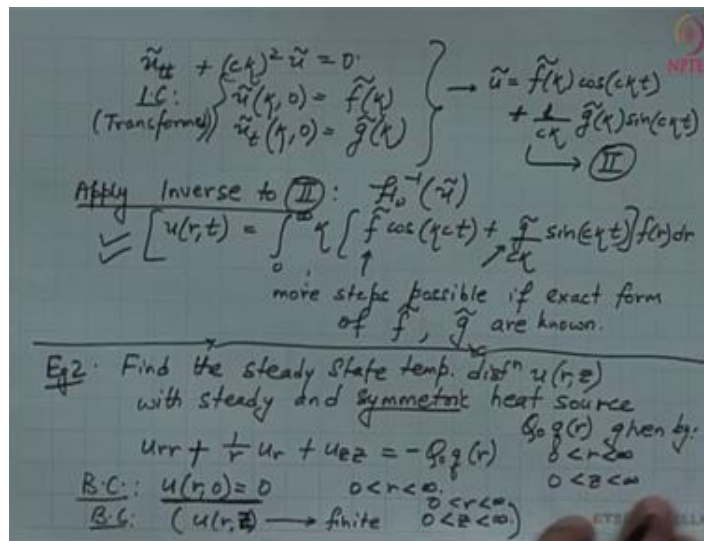 ũ_tt + (cκ)² ũ = 0.
I.C: ũ(κ,0) = f̃(κ)
(Transformed) ũ_t(κ,0) = g̃(κ)
→ ũ = f̃(κ) cos(cκt)
+ 1/cκ g̃(κ) sin(cκt)
→ II
NPTEL
Apply Inverse to II : H₀⁻¹(ũ)
[u(r,t) = ∫₀^∞ κ [f̃ cos(κct) + g̃/cκ sin(cκt)] f(r)dr
more steps possible if exact form
of f̃, g̃ are known.
Eg2. Find the steady state temp. distⁿ u(r,z)
with steady and symmetric heat source
Q₀ q(r) given by:
u_rr + 1/r u_r + u_zz = -Q₀ q(r) 0<r<∞
0<z<∞
B.C.: u(r,0) = 0 0<r<∞.
B.C: (u(r,z) → finite 0<r<∞, 0<z<∞)